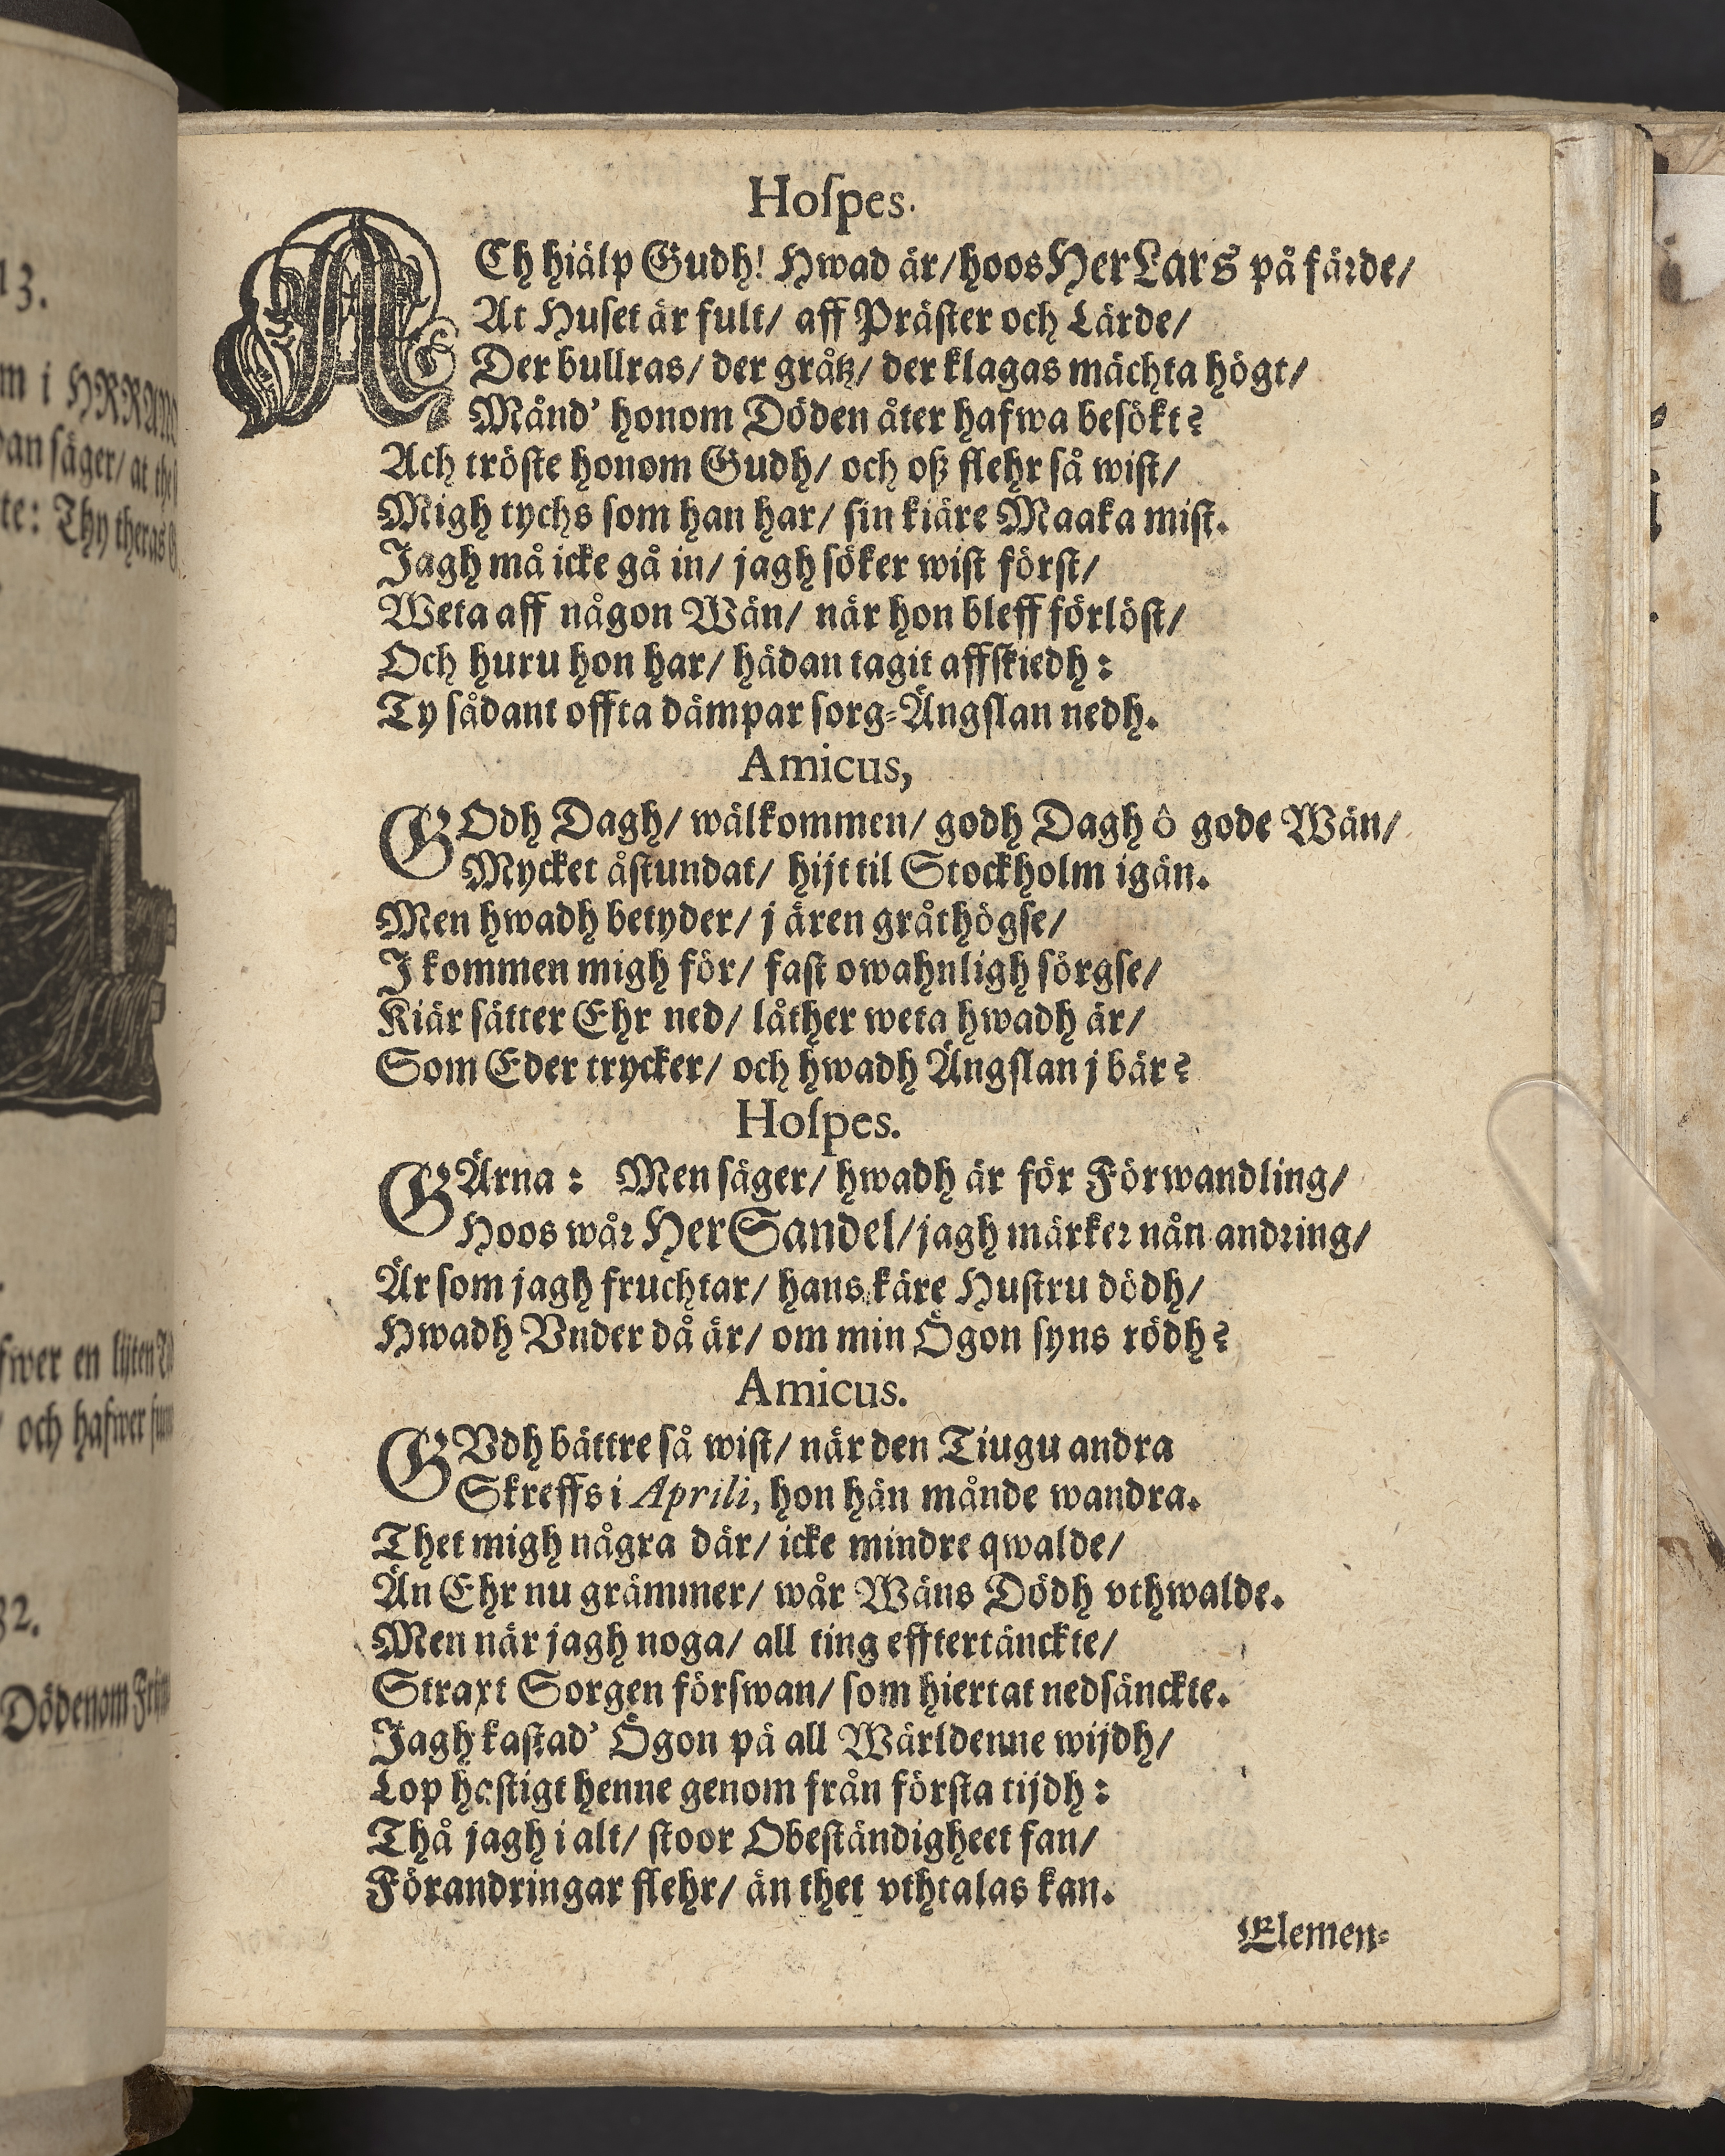 13.
m i HRRANO
dan säger/ at the
te: Thy theras
fwer en lijten
och hafwer
32.
Dödenom
Hoſpes.
ACh hiälp Gudh! Hwad är/ hoos Her Lars på färde/
At Huſet är fult/ aff Präſter och Lärde/
Der bullras/ der gråtz/ der klagas mächta högt/
Månd' honom Döden åter hafwa beſökt?
Ach tröſte honom Gudh/ och oß ſlehr så wiſt/
Migh tychs ſom han har/ ſin kiäre Maaka miſt.
Jagh må icke gå in/ jagh ſöker wiſt förſt/
Weta aff någon Wän/ när hon bleff förlöſt/
Och huru hon har/ hädan tagit affſkiedh:
Ty ſådant offta dämpar ſorg-Ängſlan nedh.
Amicus,
GOdh Dagh/ wälkommen/ godh Dagh ô gode Wän/
Mycket åſtundat/ hijt til Stockholm igän.
Men hwadh betyder/ j ären gråthögſe/
J kommen migh för/ faſt owahnligh ſörgſe/
Kiär ſätter Ehr ned/ låther weta hwadh är/
Som Eder trycker/ och hwadh Ängſlan j bär?
Hoſpes.
GÄrna: Men ſäger/ hwadh är för Förwandling/
Hoos wår Her Sandel/ jagh märker nån andring/
Är ſom jagh fruchtar/ hans käre Huſtru dödh/
Hwadh Vnder då är/ om min Ögon ſyns rödh?
Amicus.
GVdh bättre ſå wiſt/ när den Tiugu andra
Skreffs i Aprili, hon hän månde wandra.
Thet migh några där/ icke mindre qwalde/
Än Ehr nu grämmer/ wår Wäns Dödh vthwalde.
Men när jagh noga/ all ting efftertänckte/
Straxt Sorgen förſwan/ ſom hiertat nedſänckte.
Jagh kaſtad' Ögon på all Wärldenne wijdh/
Lop haſtigt henne genom från förſta tijdh:
Thå jagh i alt/ ſtoor Obeſtändigheet fan/
Förandringar ſlehr/ än thet vthtalas kan.
Elemen-